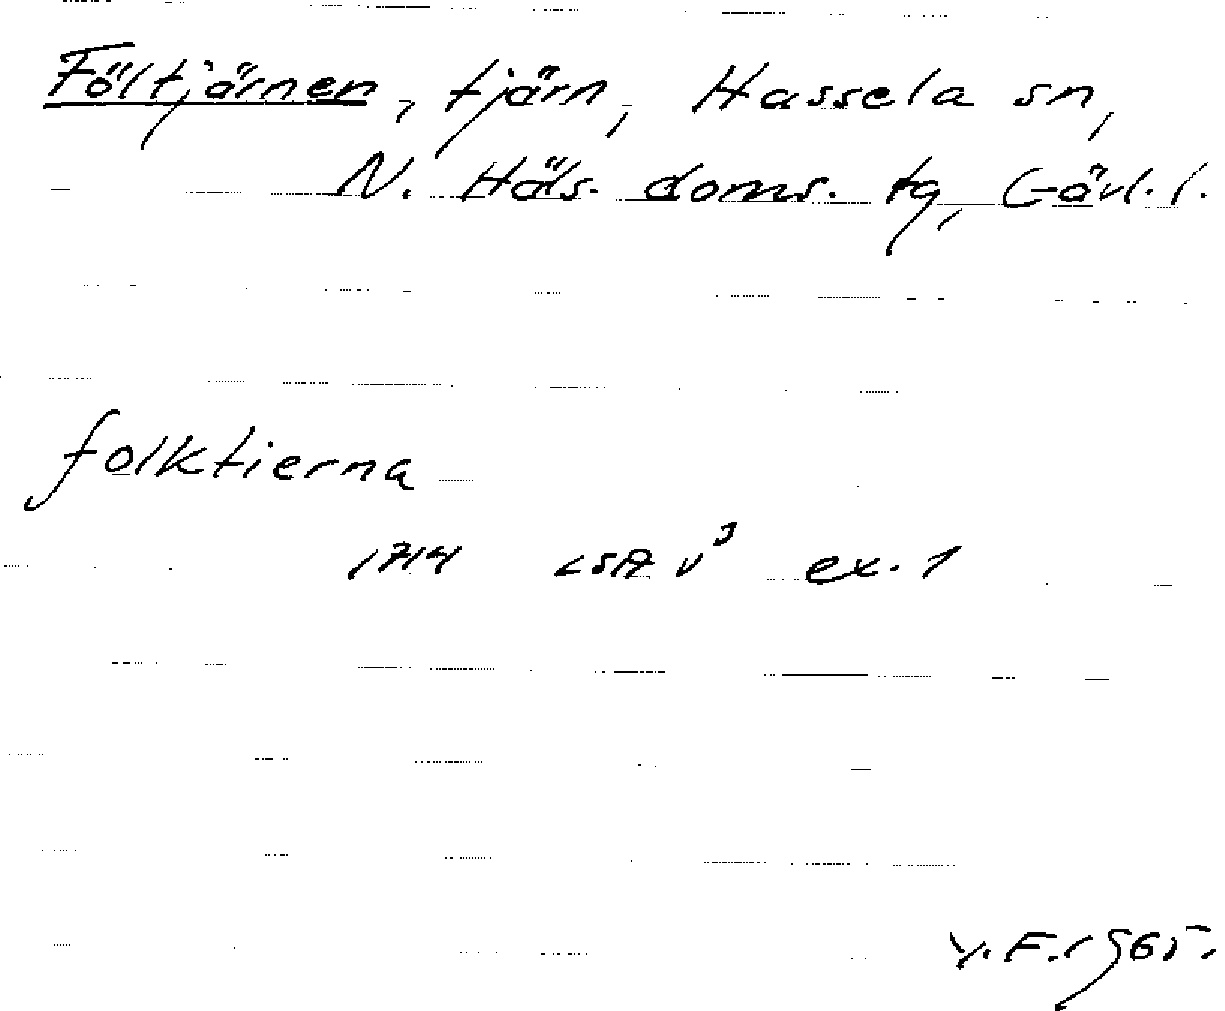 Föltjärnen, tjärn, Hassela sn,
N. Häls. doms. tg, Gävl. l.
folktierna
1714 LSA V³ ex. 1
V.F. 1965.